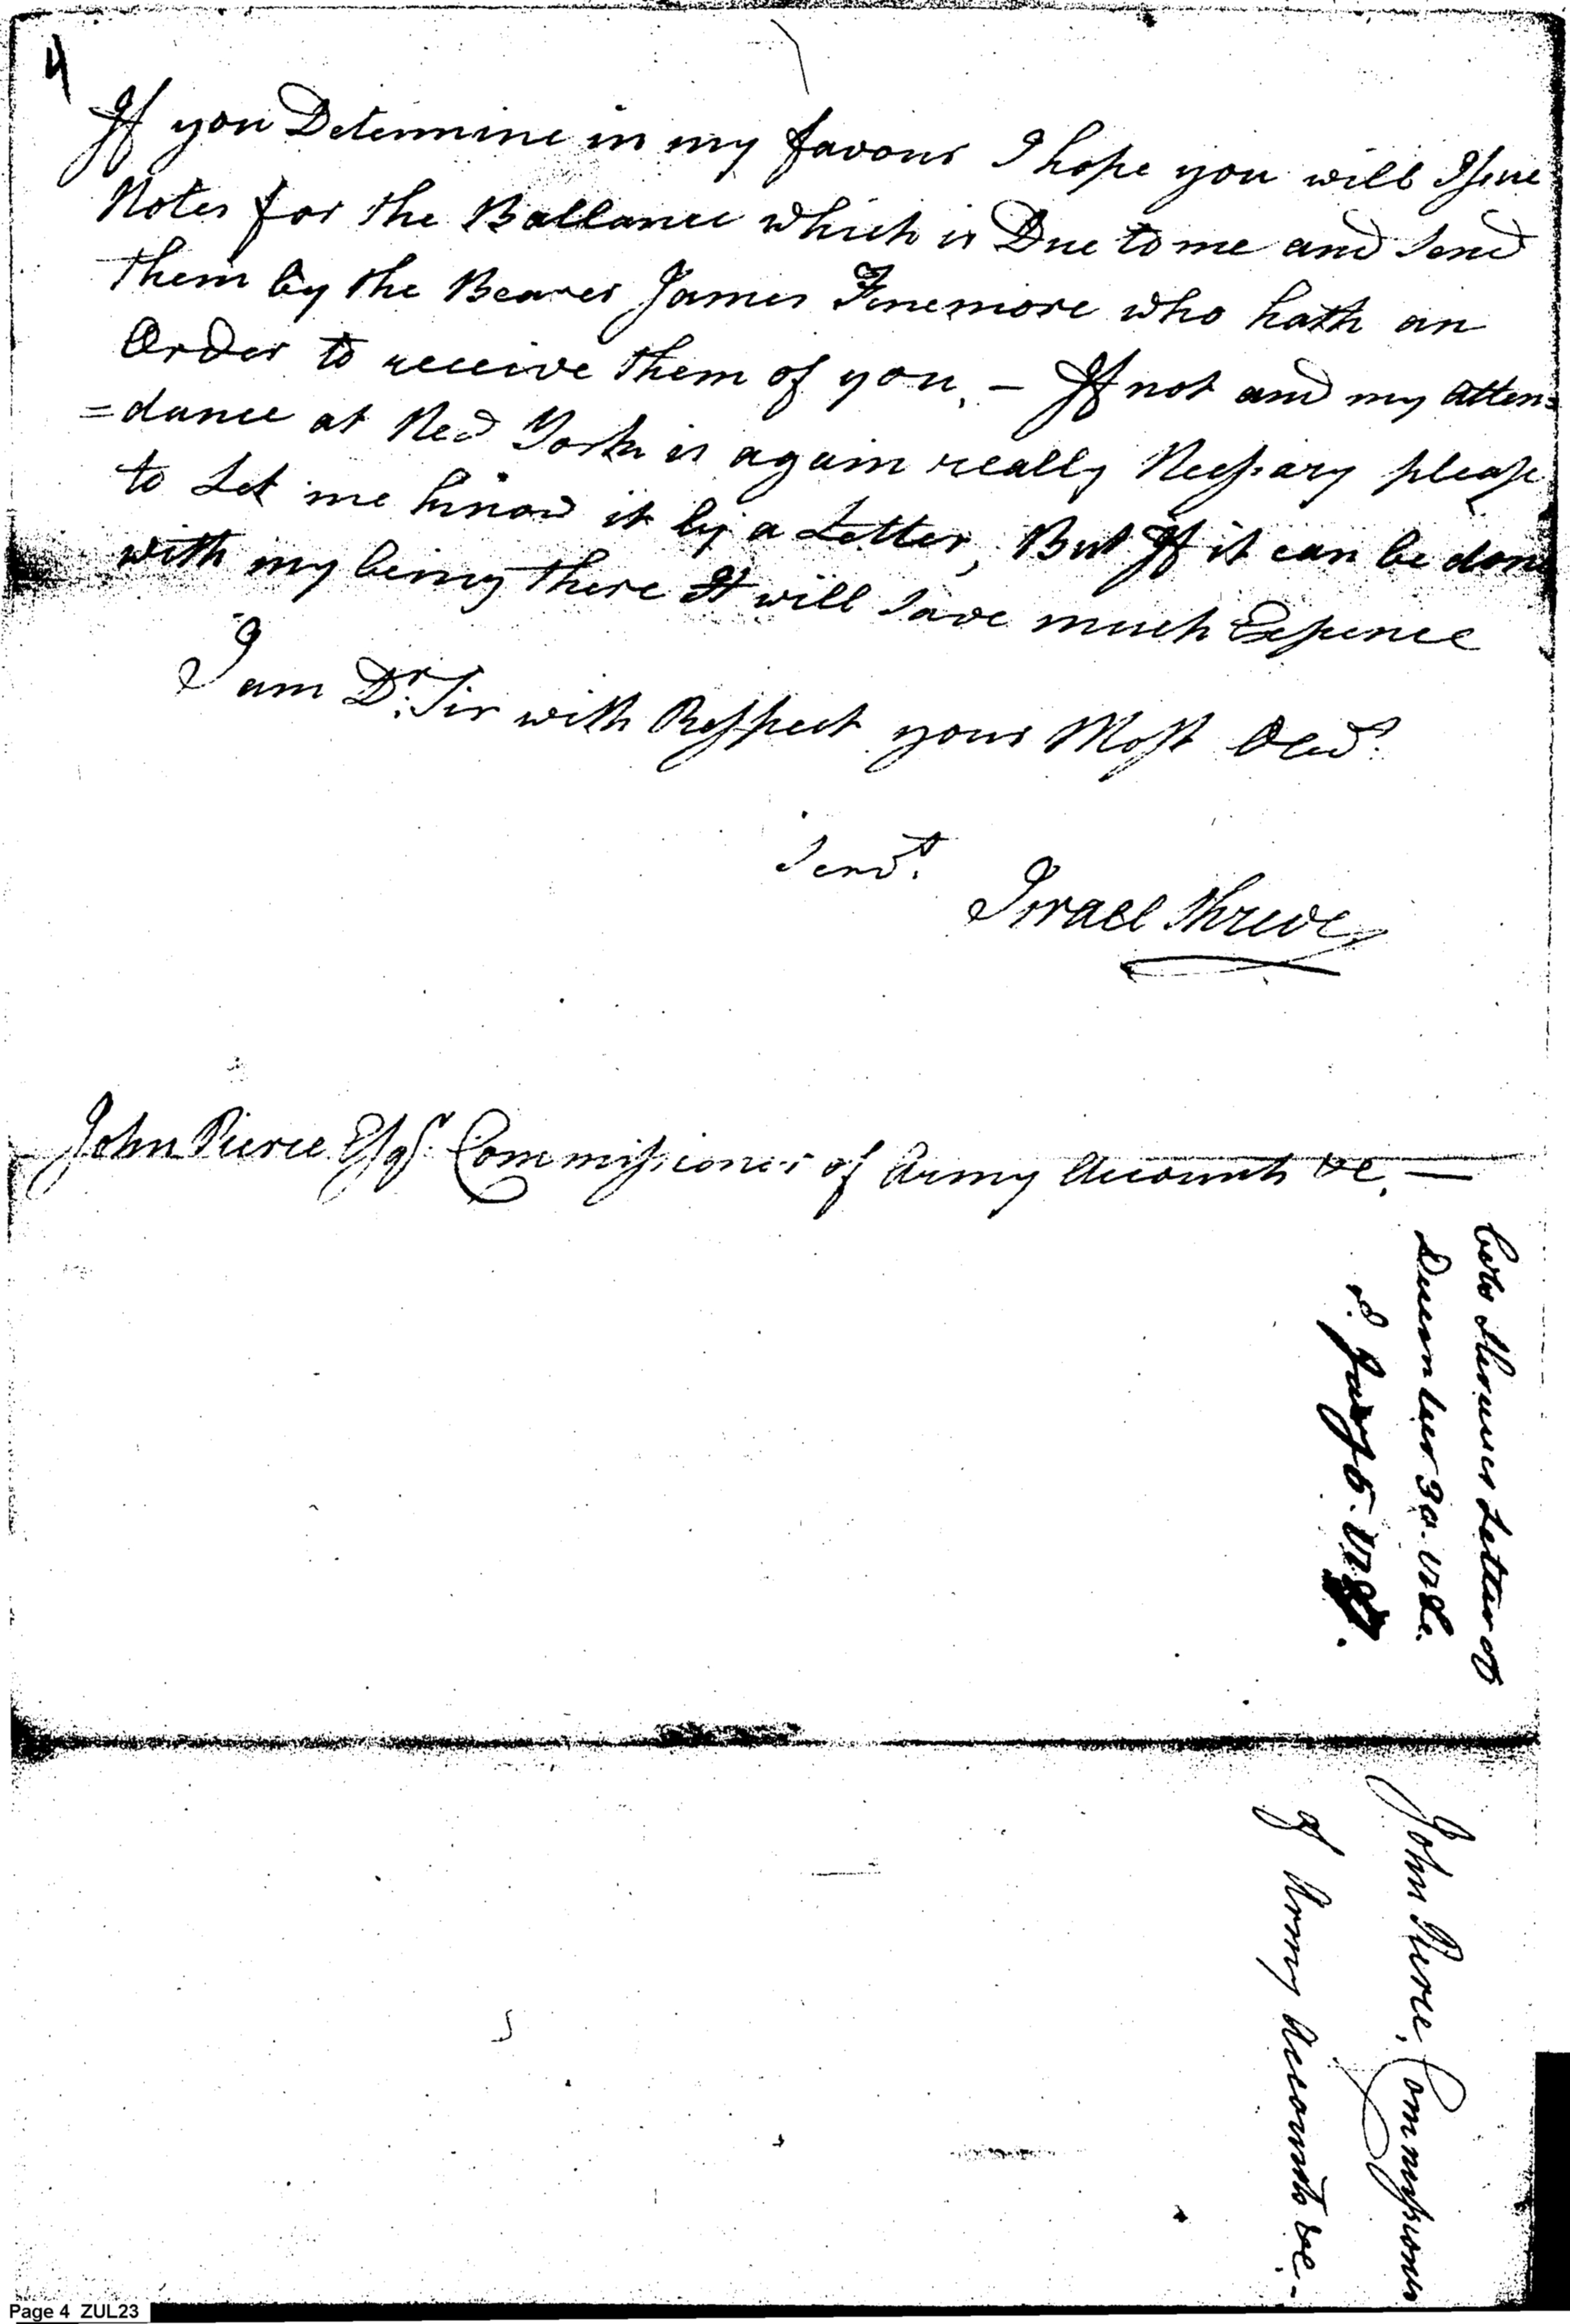 4
If you Determine in my favour I hope you will Issue
Notes for the Ballance which is Due to me and Send
them by the Bearer James Finemore who hath an
Order to receive them of you, – If not and my atten=
=dance at New York is again really Nessary please
to Let me know it by a Letter, But If it can be done
with my being there It will Save much Expence
I am Dr. Sir with Respect your Most Obed.
Servt.
Israel Shreve
John Pierce Esqr. Commissioner of Army Accounts &c. —
Colo Shreves Letter of
December 30. 1786.
r. Jany 5. 1787.
John Pierce, Commissioner
of Army Accounts &c -
Page 4 ZUL23